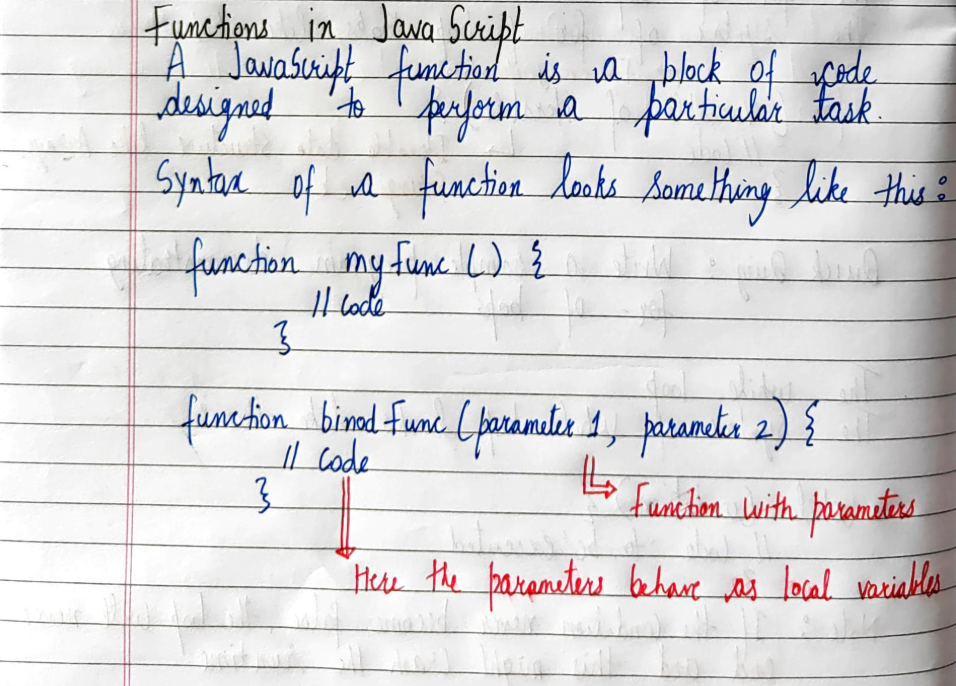 Functions in JavaScript
A JavaScript function is a block of code
designed to perform a particular task.
Syntax of a function looks something like this:
function myFunc () {
// code
}
function binodFunc (parameter 1, parameter 2) {
// code
}
Function with parameters
Here the parameters behave as local variables